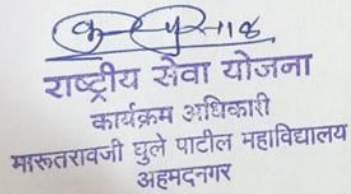 राष्ट्रीय सेवा योजना
कार्यक्रम अधिकारी
मारूतरावजी घुले पाटील महाविद्यालय
अहमदनगर